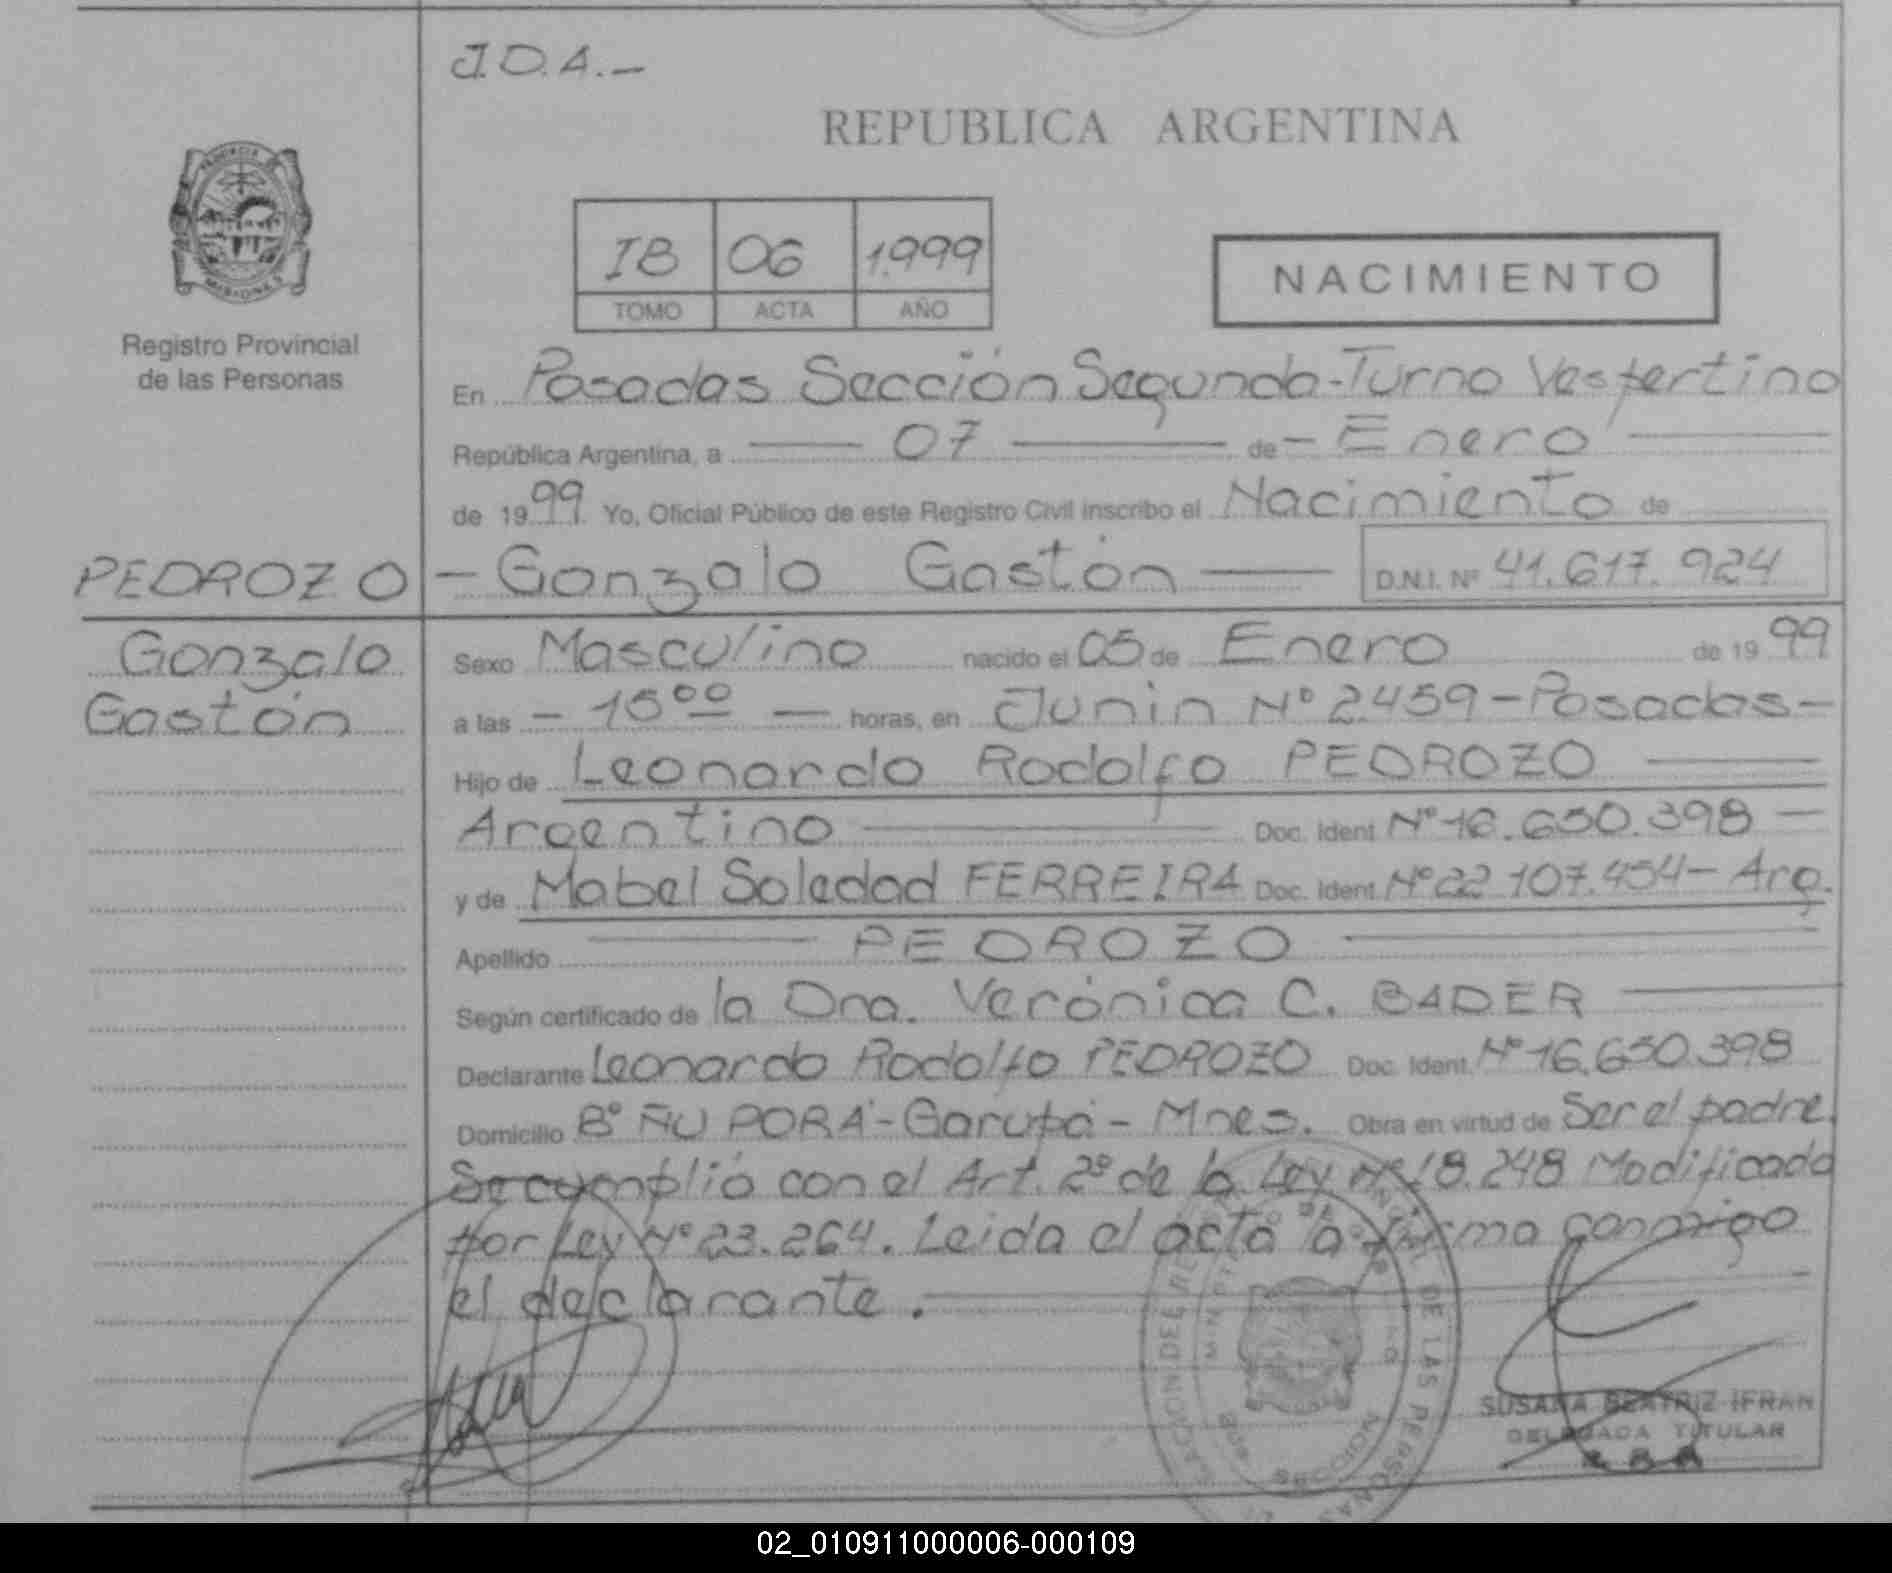 J.D.A.-
REPUBLICA ARGENTINA
IB 06 1.999
TOMO ACTA AÑO
NACIMIENTO
Registro Provincial
de las Personas
En Posadas Sección Segunda-Turno Vespertino
República Argentina, a 07 de - Enero
de 1999 Yo, Oficial Público de este Registro Civil inscribo el Nacimiento de
PEDROZO - Gonzalo Gastón D.N.I. Nº 41.617.924
Gonzalo
Gastón
Sexo Masculino nacido el 05 de Enero de 1999
a las - 15⁰⁰ - horas, en Junin Nº 2.459-Posadas-
Hijo de Leonardo Rodolfo PEDROZO
Argentino Doc. Ident. Nº 16.650.398 -
y de Mabel Soledad FERREIRA Doc. Ident. Nº 22.107.454- Arg.
Apellido PEDROZO
Según certificado de la Dra. Verónica C. BADER
Declarante Leonardo Rodolfo PEDROZO Doc. Ident. Nº 16.650.398
Domicilio Bº ÑU PORÁ-Garupá- Mnes. Obra en virtud de Ser el padre.
Se cumplió con el Art. 2º de la Ley Nº 18.248 Modificada
por Ley Nº 23.264. Leida el acta la firma conmigo
el declarante.
SUSANA BEATRIZ IFRAN
DELEGADA TITULAR
02_010911000006-000109